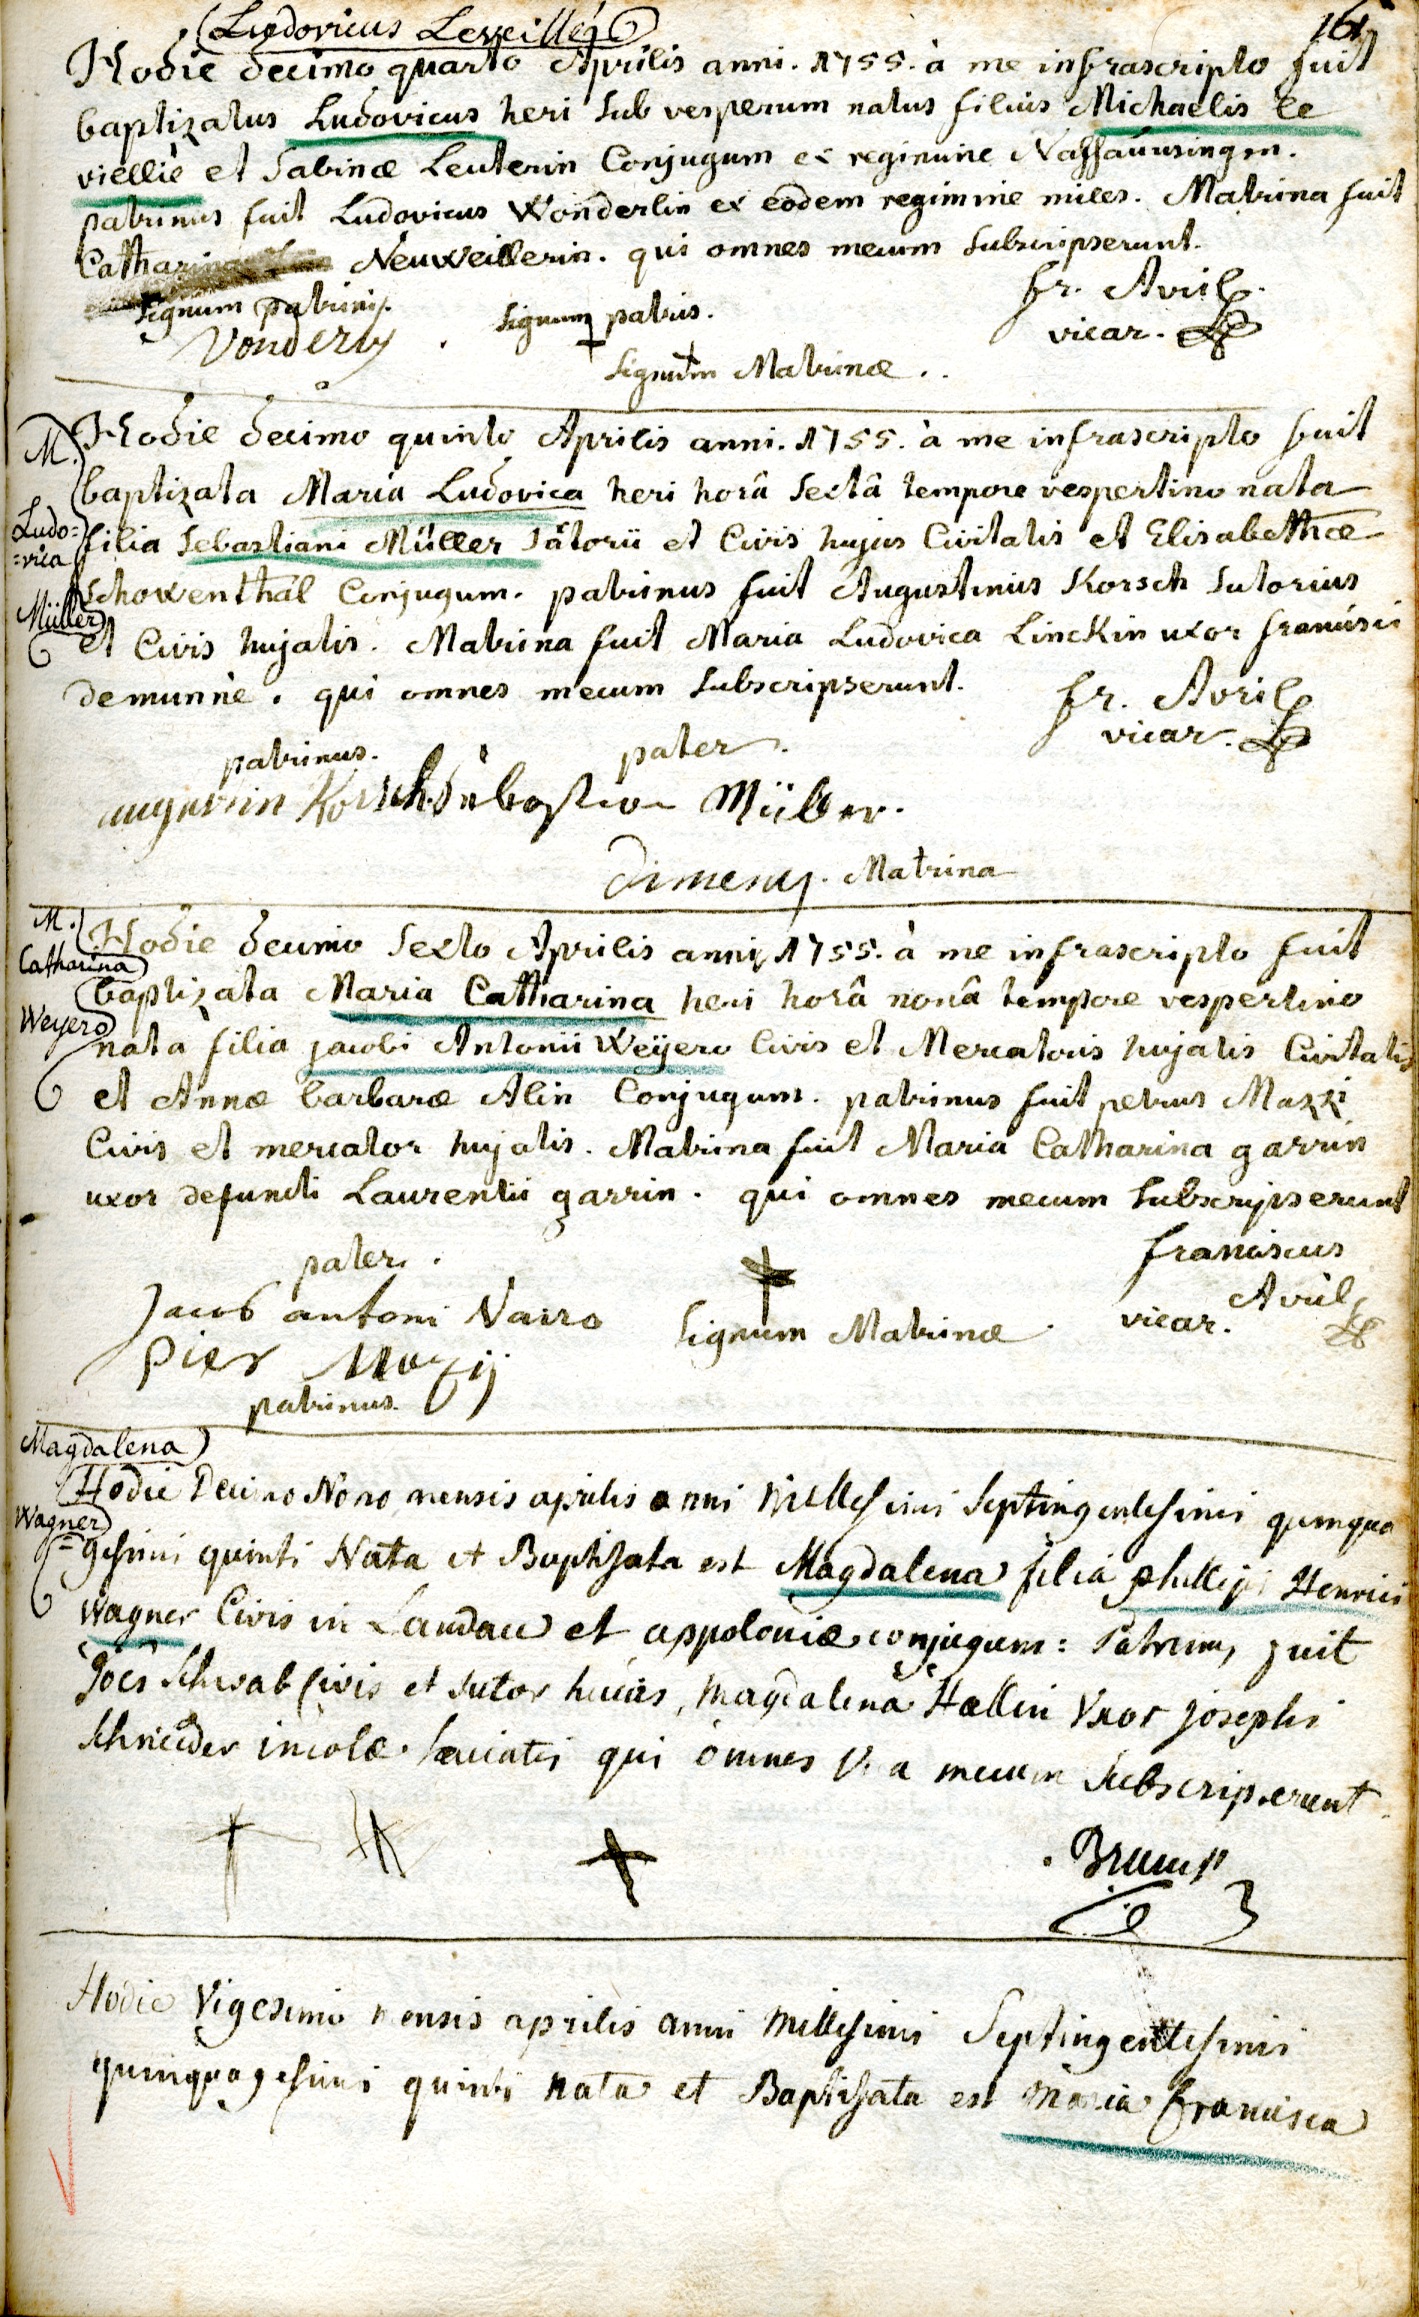 Ludovicus Leveillé
161
Hodie decimo quarto Aprilis anni. 1755. à me infrascripto fuit
baptizatus Ludovicus heri sub vesperum natus filius Michaelis le
viellie et Sabinæ Leuterin Conjugum ex regimine Nassauusingen.
patrinus fuit Ludovicus Wonderlin ex eodem regimine miles. Matrina fuit
Catharina Neuweillerin. qui omnes mecum subscripserunt.
signum patrini.
signum patris.
fr. Avril
vicar.
Vonderly
signum Matrinæ.
M.
Ludo=
=vica
Müller
Hodie decimo quinto Aprilis anni. 1755. à me infrascripto fuit
baptizata Maria Ludovica heri horâ sextâ tempore vespertino nata
filia Sebastiani Müller sâtorii et Civis hujus Civitatis et Elisabethæ
schowenthal Conjugum. patrinus fuit Augustinus Korsch sutorius
et Civis hujatis. Matrina fuit Maria Ludovica Linckin uxor francisci
demunne. qui omnes mecum subscripserunt.
fr. Avril
vicar.
patrinus.
pater.
Korsch Sebastian Müller.
Matrina
M.
Catharina
Weyero
Hodie decimo sexto Aprilis anni 1755. à me infrascripto fuit
baptizata Maria Catharina heri horâ nonâ tempore vespertino
nata filia jacobi Antonii Weÿero Civis et Mercatoris hujatis Civitatis
et Annæ barbaræ Alin Conjugum. patrinus fuit petrus Mazzi
Civis et mercator hujatis. Matrina fuit Maria Catharina garrin
uxor defuncti Laurentii garrin. qui omnes mecum subscripserunt
pater.
franciscus
Avril
vicar.
Jacob antoni Vairo
signum Matrinæ.
Pier Mozij
patrinus.
Magdalena
Wagner
Hodie Decimo Nono mensis aprilis anni Millesimi Septingentesimi quinqua
=gesimi quinti Nata et Baptisata est Magdalena filia phillippi Henrici
Wagner Civis in Landau et appoloniæ conjugum: Patrinus fuit
Joes Schwab Civis et sutor hucas, Magdalena Hallin Uxor josephi
schneider incolæ qui omnes mecum subscripserunt.
Hodie Vigesimo mensis aprilis anni Millesimi Septingentesimi
quinquagesimi quinti nata et Baptisata est Maria francisca